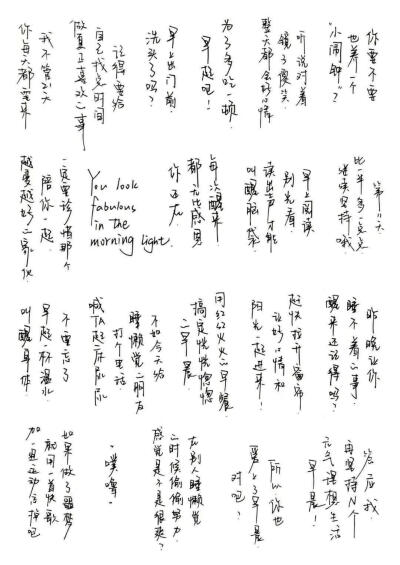 你要不要
也养一个
"小闹钟"?
听说对着
镜子傻笑
整天都会好心情
为了多吃一顿
早起吧!
早上出门前
洗头了吗?
记得要给
自己找点时间
做真正喜欢的事
我不管21天
你每天都要来
第11天
比一半多一点点
继续坚持哦
早上阅读
别光看
读出声才能
叫醒脑袋
每次醒来
都无比感恩
你还在
You look
fabulous
in the
morning light.
一定要珍惜那个
陪你一起
越变越好的家伙
昨晚让你
睡不着的事
醒来还记得吗?
赶快拉开窗帘
让好心情和
阳光一起进来!
用红红火火的早餐
搞定恍恍惚惚
的早晨
不如今天给
睡懒觉的朋友
打个电话
喊TA起床尿尿
不要忘了
早起一杯温水
叫醒身体
答应我
再坚持N个
元气理想生活
早晨!
所以你也
爱上了早晨
对吧?
在别人睡懒觉
的时候偷偷努力
感觉是不是很爽?
如果做了噩梦
就用一首快歌
加一点运动忘掉吧